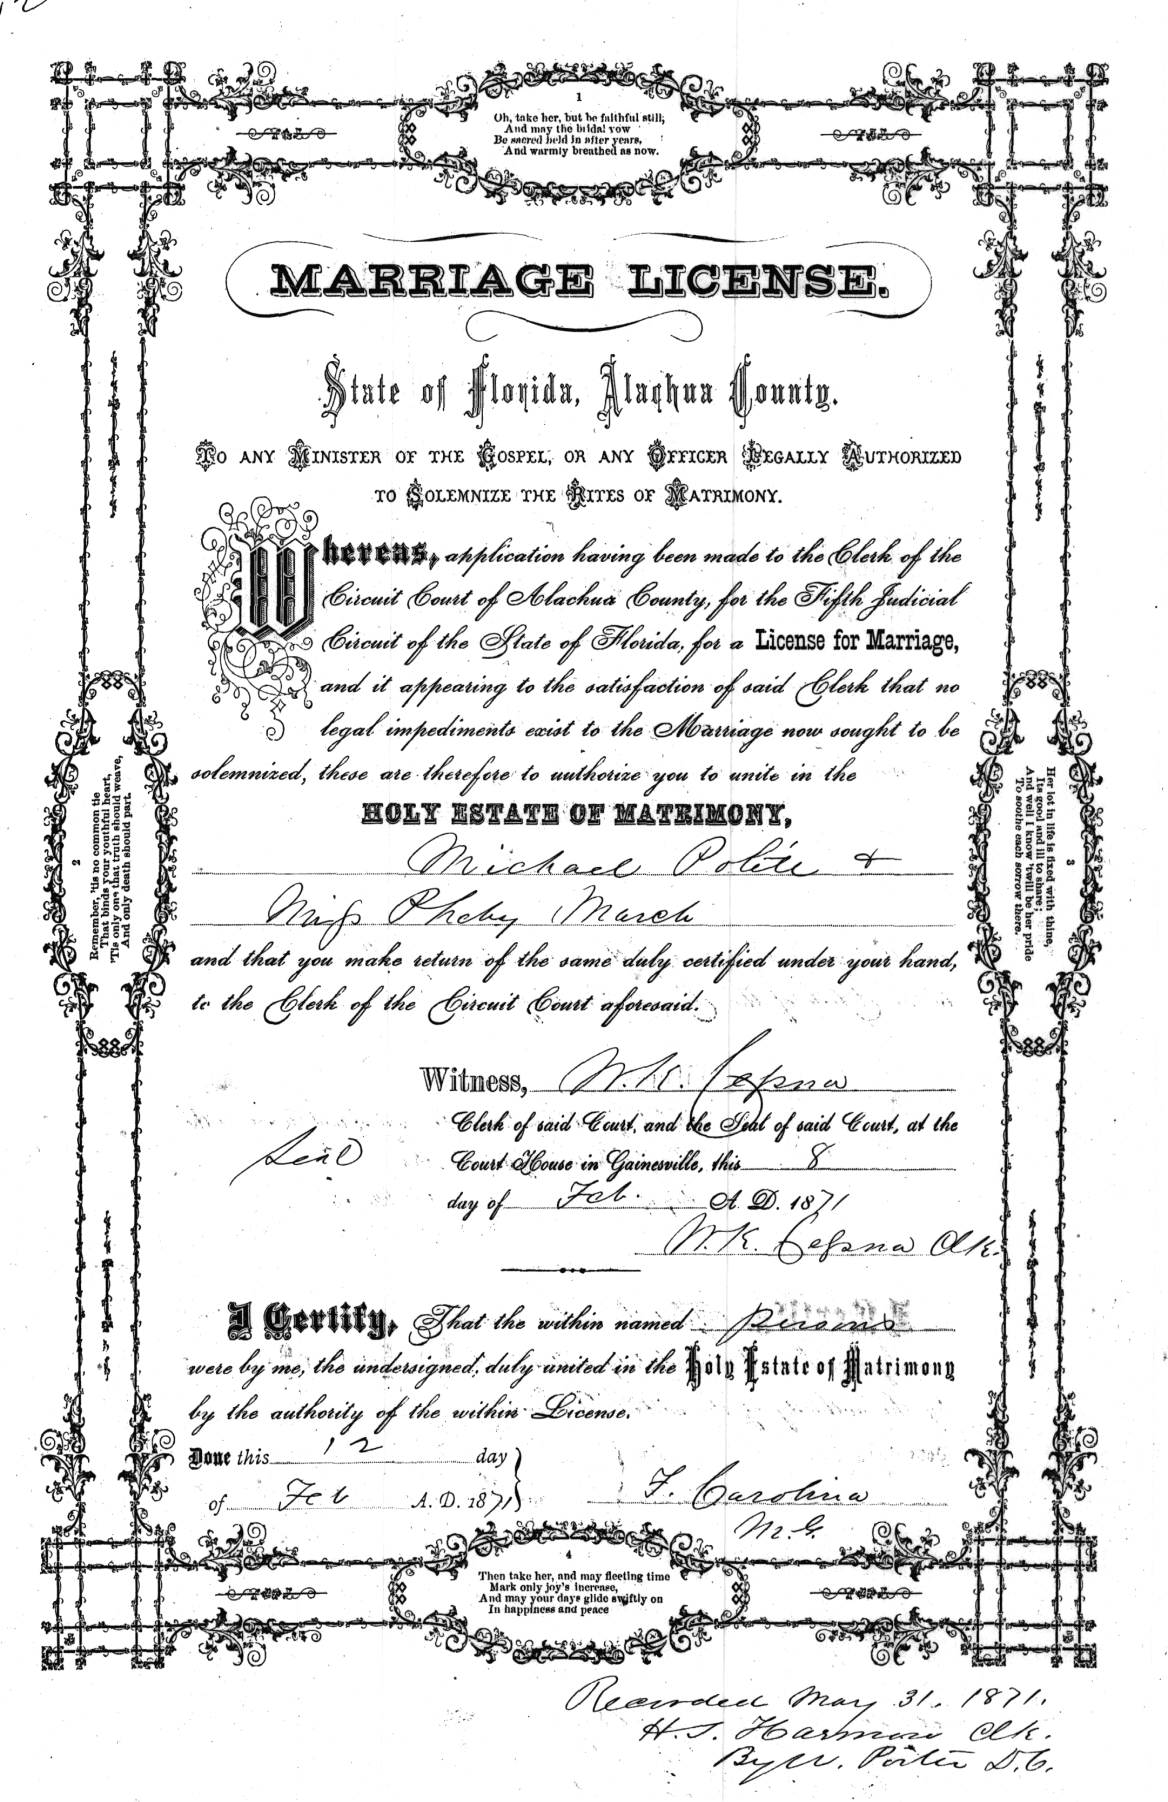 1
Oh, take her, but be faithful still;
And may the bridal vow
Be sacred held in after years,
And warmly breathed as now.
MARRIAGE LICENSE.
State of Florida, Alachua County.
TO ANY MINISTER OF THE GOSPEL, OR ANY OFFICER LEGALLY AUTHORIZED
TO SOLEMNIZE THE RITES OF MATRIMONY.
Whereas, application having been made to the Clerk of the
Circuit Court of Alachua County, for the Fifth Judicial
Circuit of the State of Florida, for a License for Marriage,
and it appearing to the satisfaction of said Clerk that no
legal impediments exist to the Marriage now sought to be
solemnized, these are therefore to authorize you to unite in the
HOLY ESTATE OF MATRIMONY,
Michael Polite &
Miss Pheby March
and that you make return of the same duly certified under your hand,
to the Clerk of the Circuit Court aforesaid.
2
Remember, 'tis no common tie
That binds your youthful heart,
'Tis only one that truth should weave,
And only death should part.
3
Her lot in life is fixed with thine,
Its good and ill to share;
And well I know 'twill be her pride
To soothe each sorrow there.
Witness, W. K. Cessna
Clerk of said Court, and the Seal of said Court, at the
Seal
Court House in Gainesville, this 8
day of Feb. A. D. 1871
W. K. Cessna Clk.
I Certify, That the within named persons
were by me, the undersigned, duly united in the Holy Estate of Matrimony
by the authority of the within License.
Done this 12 day
of Feb A. D. 1871
F. Carolina
M.G.
4
Then take her, and may fleeting time
Mark only joy's increase,
And may your days glide swiftly on
In happiness and peace
Recorded May 31. 1871.
H. S. Harmon Clk.
By W. Porter D.C.